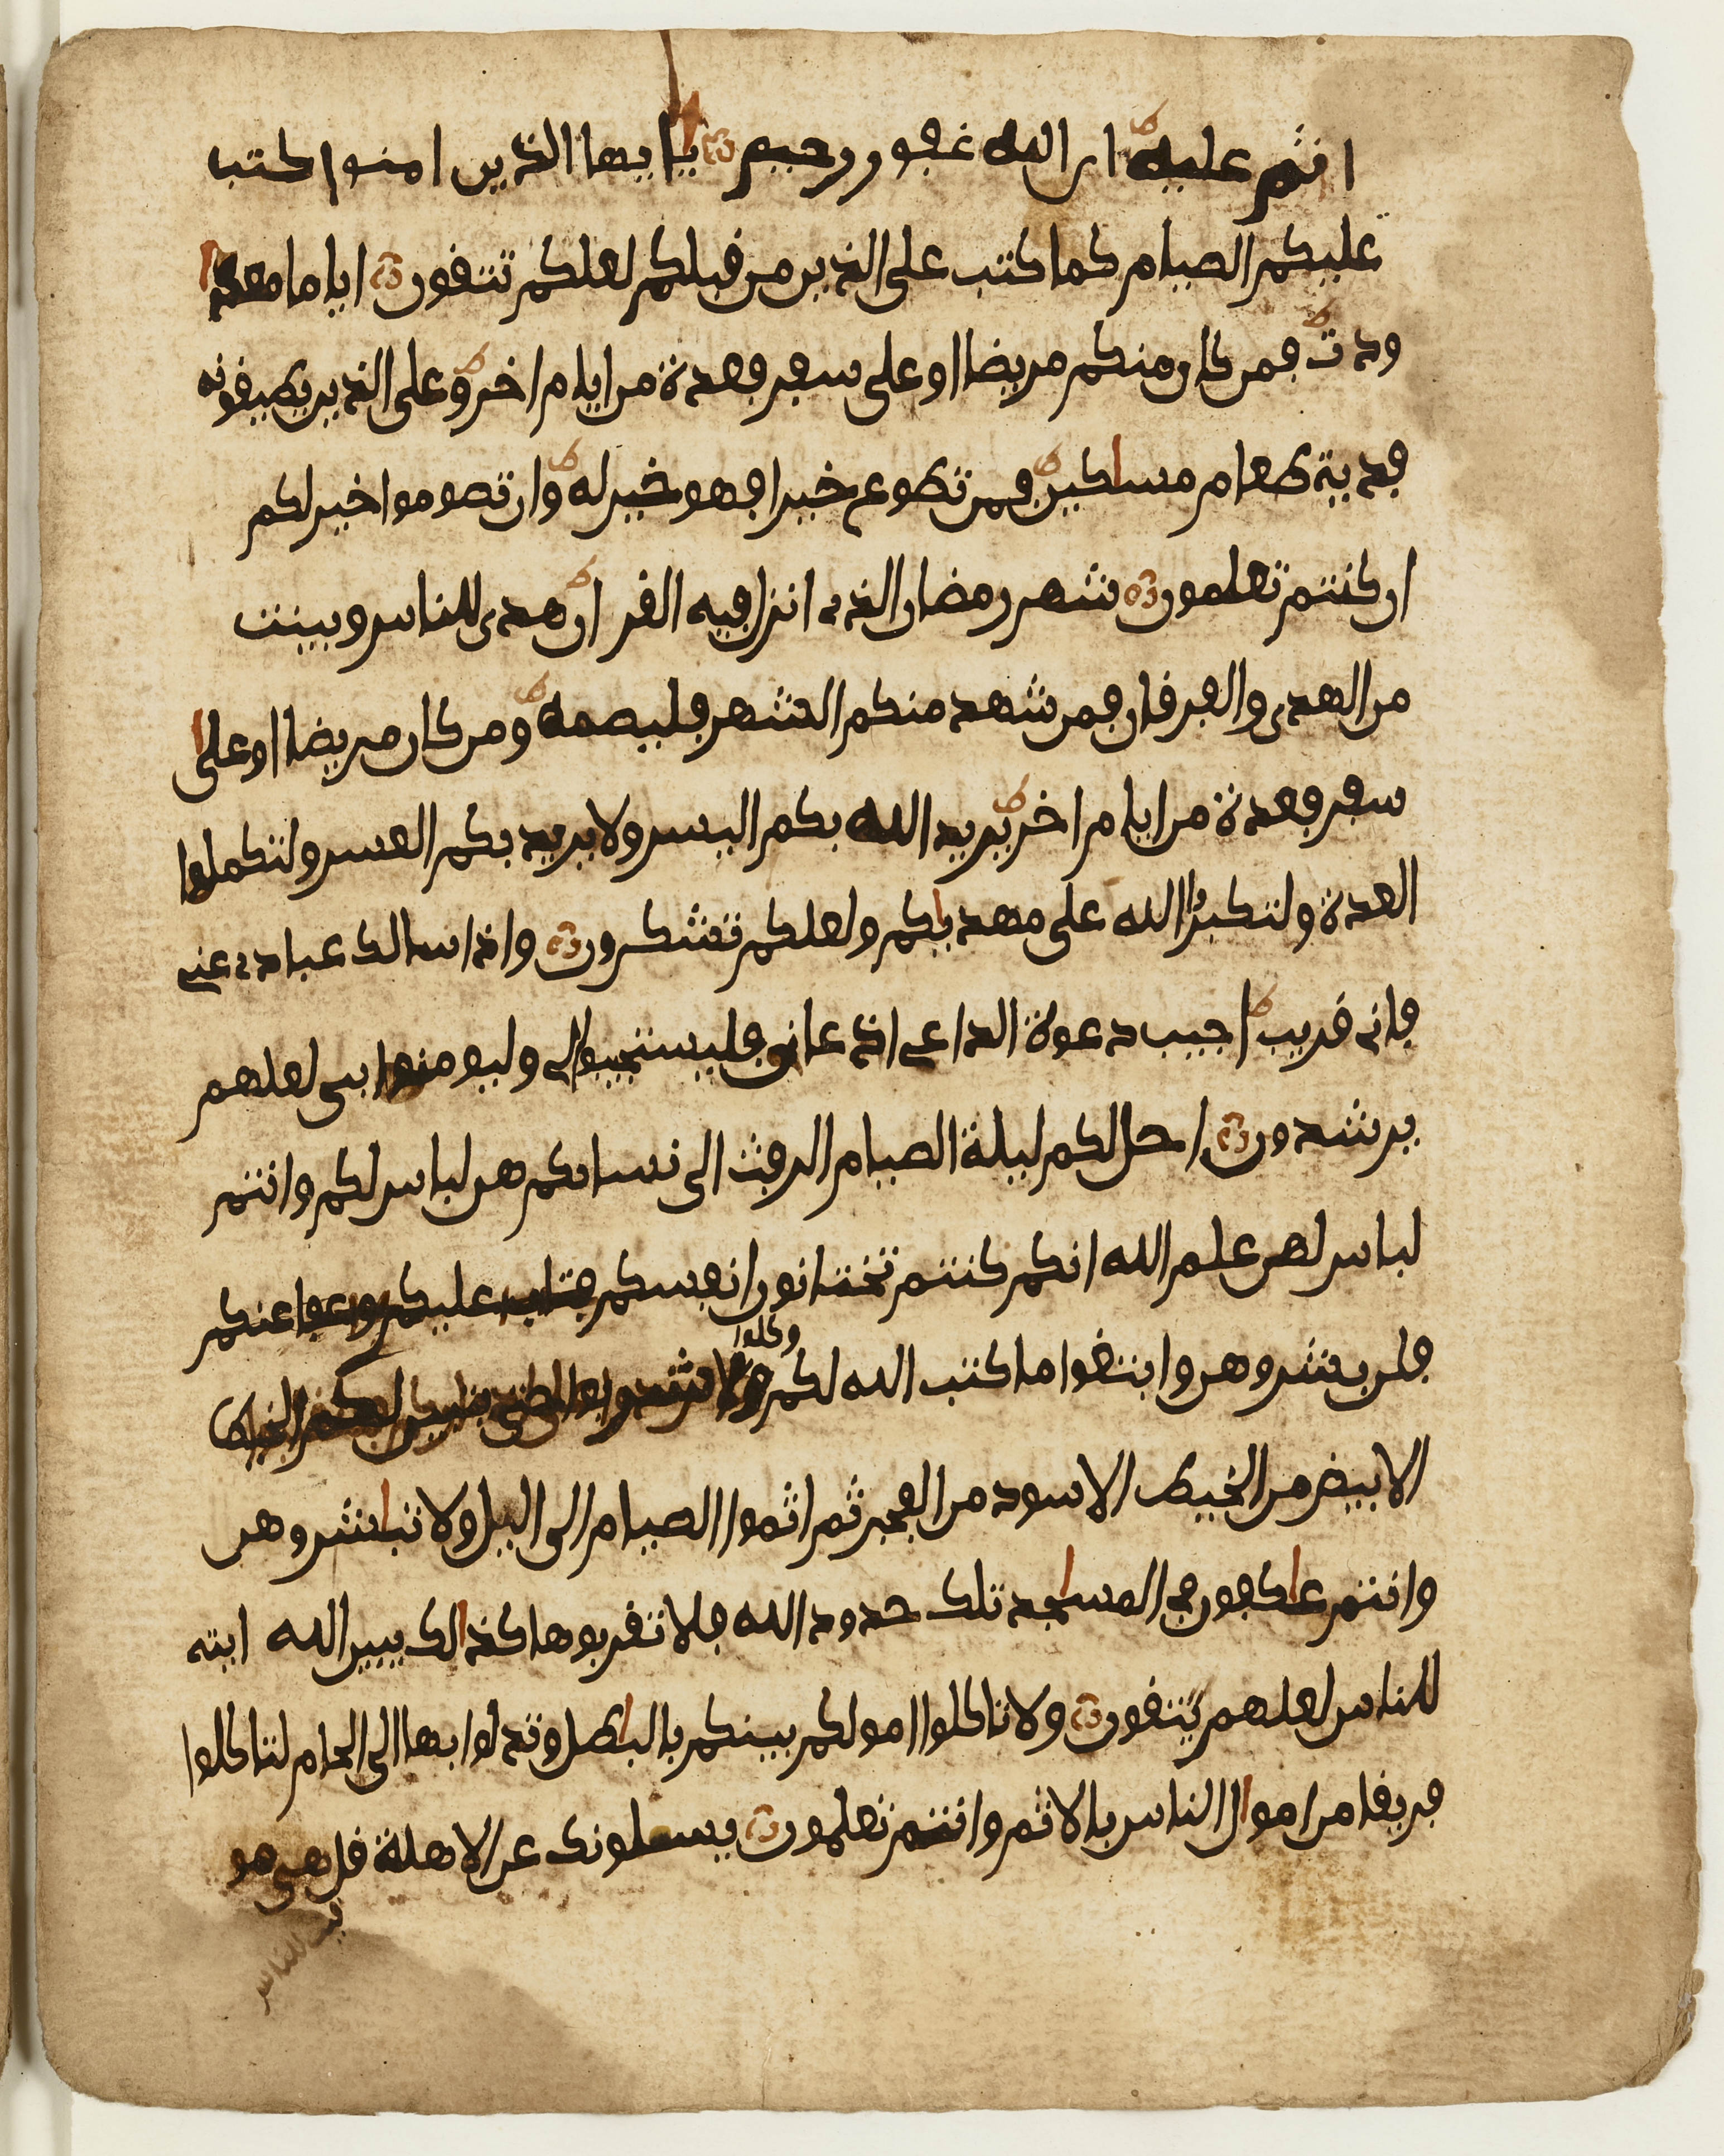 اثم عليه ان الله غفور رحيم يا ايها الذين امنوا كتب
عليكم الصيام كما كتب على الذين من قبلكم لعلكم تتقون اياما معد
ودت فمن كان منكم مريضا او على سفر فعدة من ايام اخر وعلى الذين يطيقونه
فدية طعام مساكين فمن تطوع خيرا فهو خير له وان تصوموا خير لكم
ان كنتم تعلمون شهر رمضان الذي انزل فيه القران هدى للناس وبينت
من الهدى والفرقان فمن شهد منكم الشهر فليصمه ومن كان مريضا او على
سفر فعدة من ايام اخر يريد الله بكم اليسر ولا يريد بكم العسر ولتكملوا
العدة ولتكبروا الله على ما هديكم ولعلكم تشكرون واذا سالك عبادي عني
فاني قريب اجيب دعوة الداعي اذا دعان فليستجيبوا لي وليومنوا بي لعلهم
يرشدون احل لكم ليلة الصيام الرفث الى نسائكم هن لباس لكم وانتم
لباس لهن علم الله انكم كنتم تختانون انفسكم فتاب عليكم وعفا عنكم
فلن بشروهن وابتغوا ما كتب الله لكم وكلوا
الابيض من الخيط الاسود من الفجر ثم اتموا الصيام الى اليل ولا تباشروهن
وانتم عاكفون في المساجد تلك حدود الله فلا تقربوها كذالك يبين الله ايته
للناس لعلهم يتقون ولا تاكلوا امولكم بينكم بالباطل وتدلوا بها الى الحكام لتاكلوا
فريقا من اموال الناس بالاثم وانتم تعلمون يسلونك عن الاهلة قل هي مو
قيت للناس